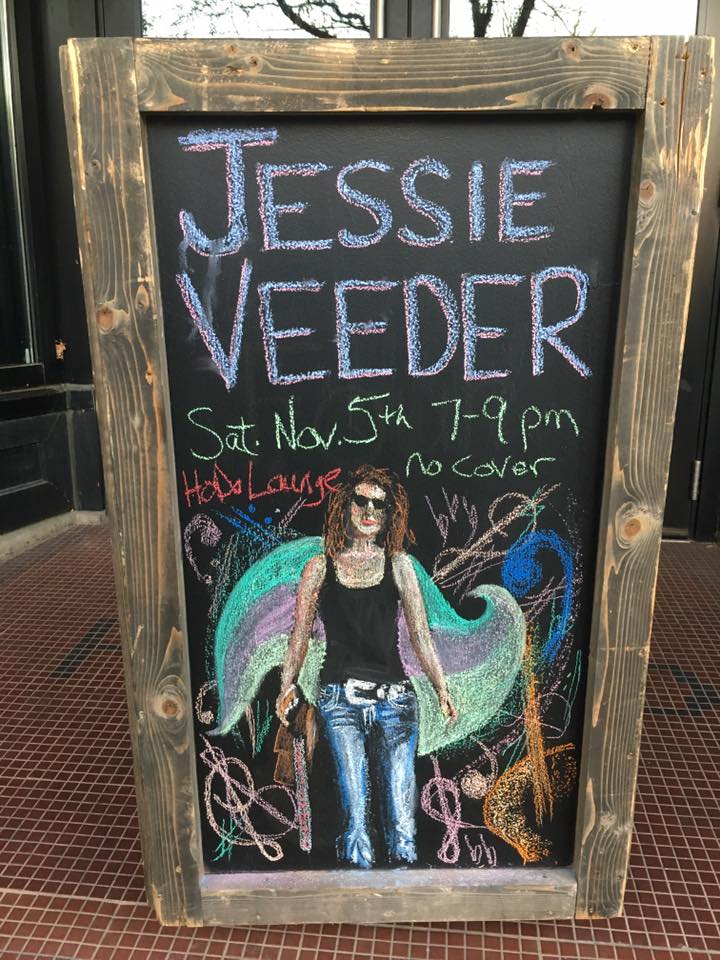 JESSIE
VEEDER
Sat. Nov. 5th 7-9 pm
no cover
HoDo Lounge